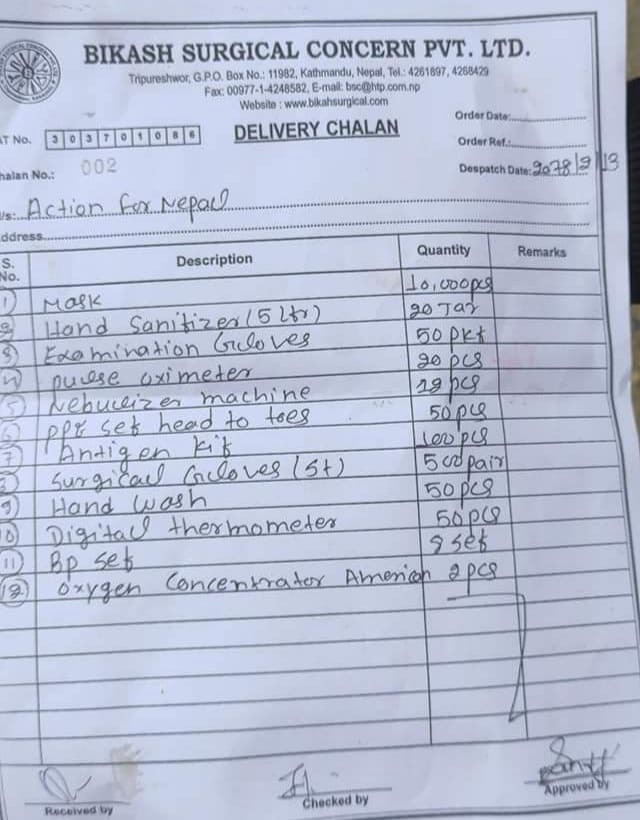 BIKASH SURGICAL CONCERN PVT. LTD.
Tripureshwor, G.P.O. Box No.: 11982, Kathmandu, Nepal, Tel.: 4261897, 4268429
Fax: 00977-1-4248582, E-mail: bsc@htp.com.np
Website : www.bikahsurgical.com
Order Date:
AT No. 303701086
DELIVERY CHALAN
Order Ref.:
halan No.: 002
Despatch Date: 2078/9/13
/s: Action for Nepal
ddress
S. No. Description Quantity Remarks
1 Mask 10,000pcs
2 Hand Sanitizer (5 ltr) 20 Jar
3 Examination Gloves 50 pkt
4 pulse oximeter 20 pcs
5 Nebulizer machine pcs
6 PPE set head to toes 50 pcs
7 Antigen kit 100 pcs
8 Surgical Gloves (St) 500 pair
9 Hand wash 50 pcs
10 Digital thermometer 50 pcs
11 Bp set set
12 Oxygen Concentrator American 2 pcs
Received by
Checked by
Approved by